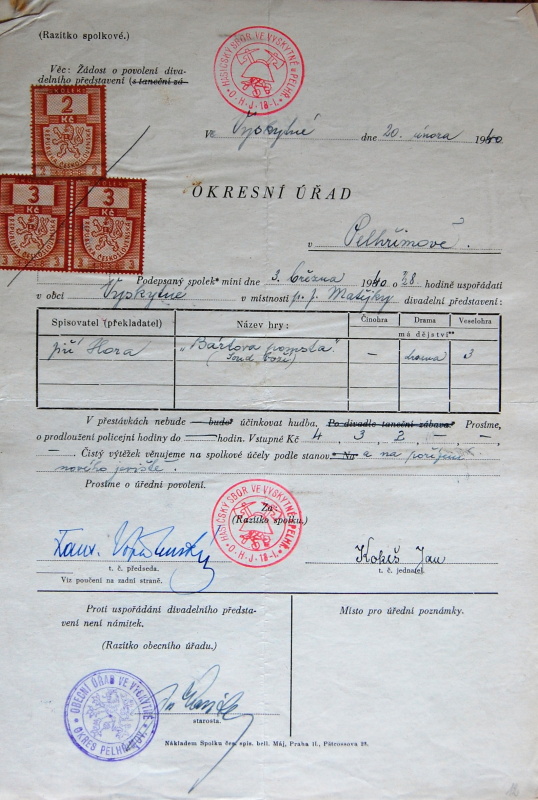 (Razítko spolkové.)
HASIČSKÝ SBOR VE VYSKYTNÉ u PELHŘ.
O·H·J·18-I.
Věc: Žádost o povolení diva-
delního představení (s taneční zá-
KOLEK
2
Kč
REPUBLIKA ČESKOSLOVENSKÁ
2 2
KOLEK KOLEK
3 3
Kč Kč
REPUBLIKA ČESKOSLOVENSKÁ REPUBLIKA ČESKOSLOVENSKÁ
3 3 3 3
Ve Vyskytné dne 20. února 1940.
OKRESNÍ ÚŘAD
v Pelhřimově.
Podepsaný spolek míní dne 3. března 1940 o 28 hodině uspořádati
v obci Vyskytné v místnosti p. J. Matějky divadelní představení:
Spisovatel (překladatel) Název hry: Činohra Drama Veselohra
má dějství**
Jiří Hora „Bártova pomsta" – drama 3
(Soud Boží)
V přestávkách nebude — bude* účinkovat hudba, Po divadle taneční zábava.* Prosíme,
o prodloužení policejní hodiny do hodin. Vstupné Kč 4, 3, 2, –, –,
–. Čistý výtěžek věnujeme na spolkové účely podle stanov.* Na a na pořízení
nového jeviště.
Prosíme o úřední povolení.
HASIČSKÝ SBOR VE VYSKYTNÉ u PELHŘ.
O·H·J·18-I.
Za:
(Razítko spolku.)
Kokeš Jan
t. č. předseda. t. č. jednatel.
Viz poučení na zadní straně.
Proti uspořádání divadelního předsta-
vení není námitek.
Místo pro úřední poznámky.
(Razítko obecního úřadu.)
OBECNÍ ÚŘAD VE VYSKYTNÉ
OKRES PELHŘIMOV.
starosta.
Nákladem Spolku čes. spis. bell. Máj, Praha II., Pštrossova 23.